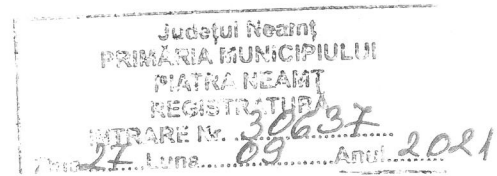 Județul Neamț
PRIMĂRIA MUNICIPIULUI
PIATRA NEAMȚ
REGISTRATURĂ
INTRARE Nr. 30637
Ziua 27 Luna 09 Anul 2021